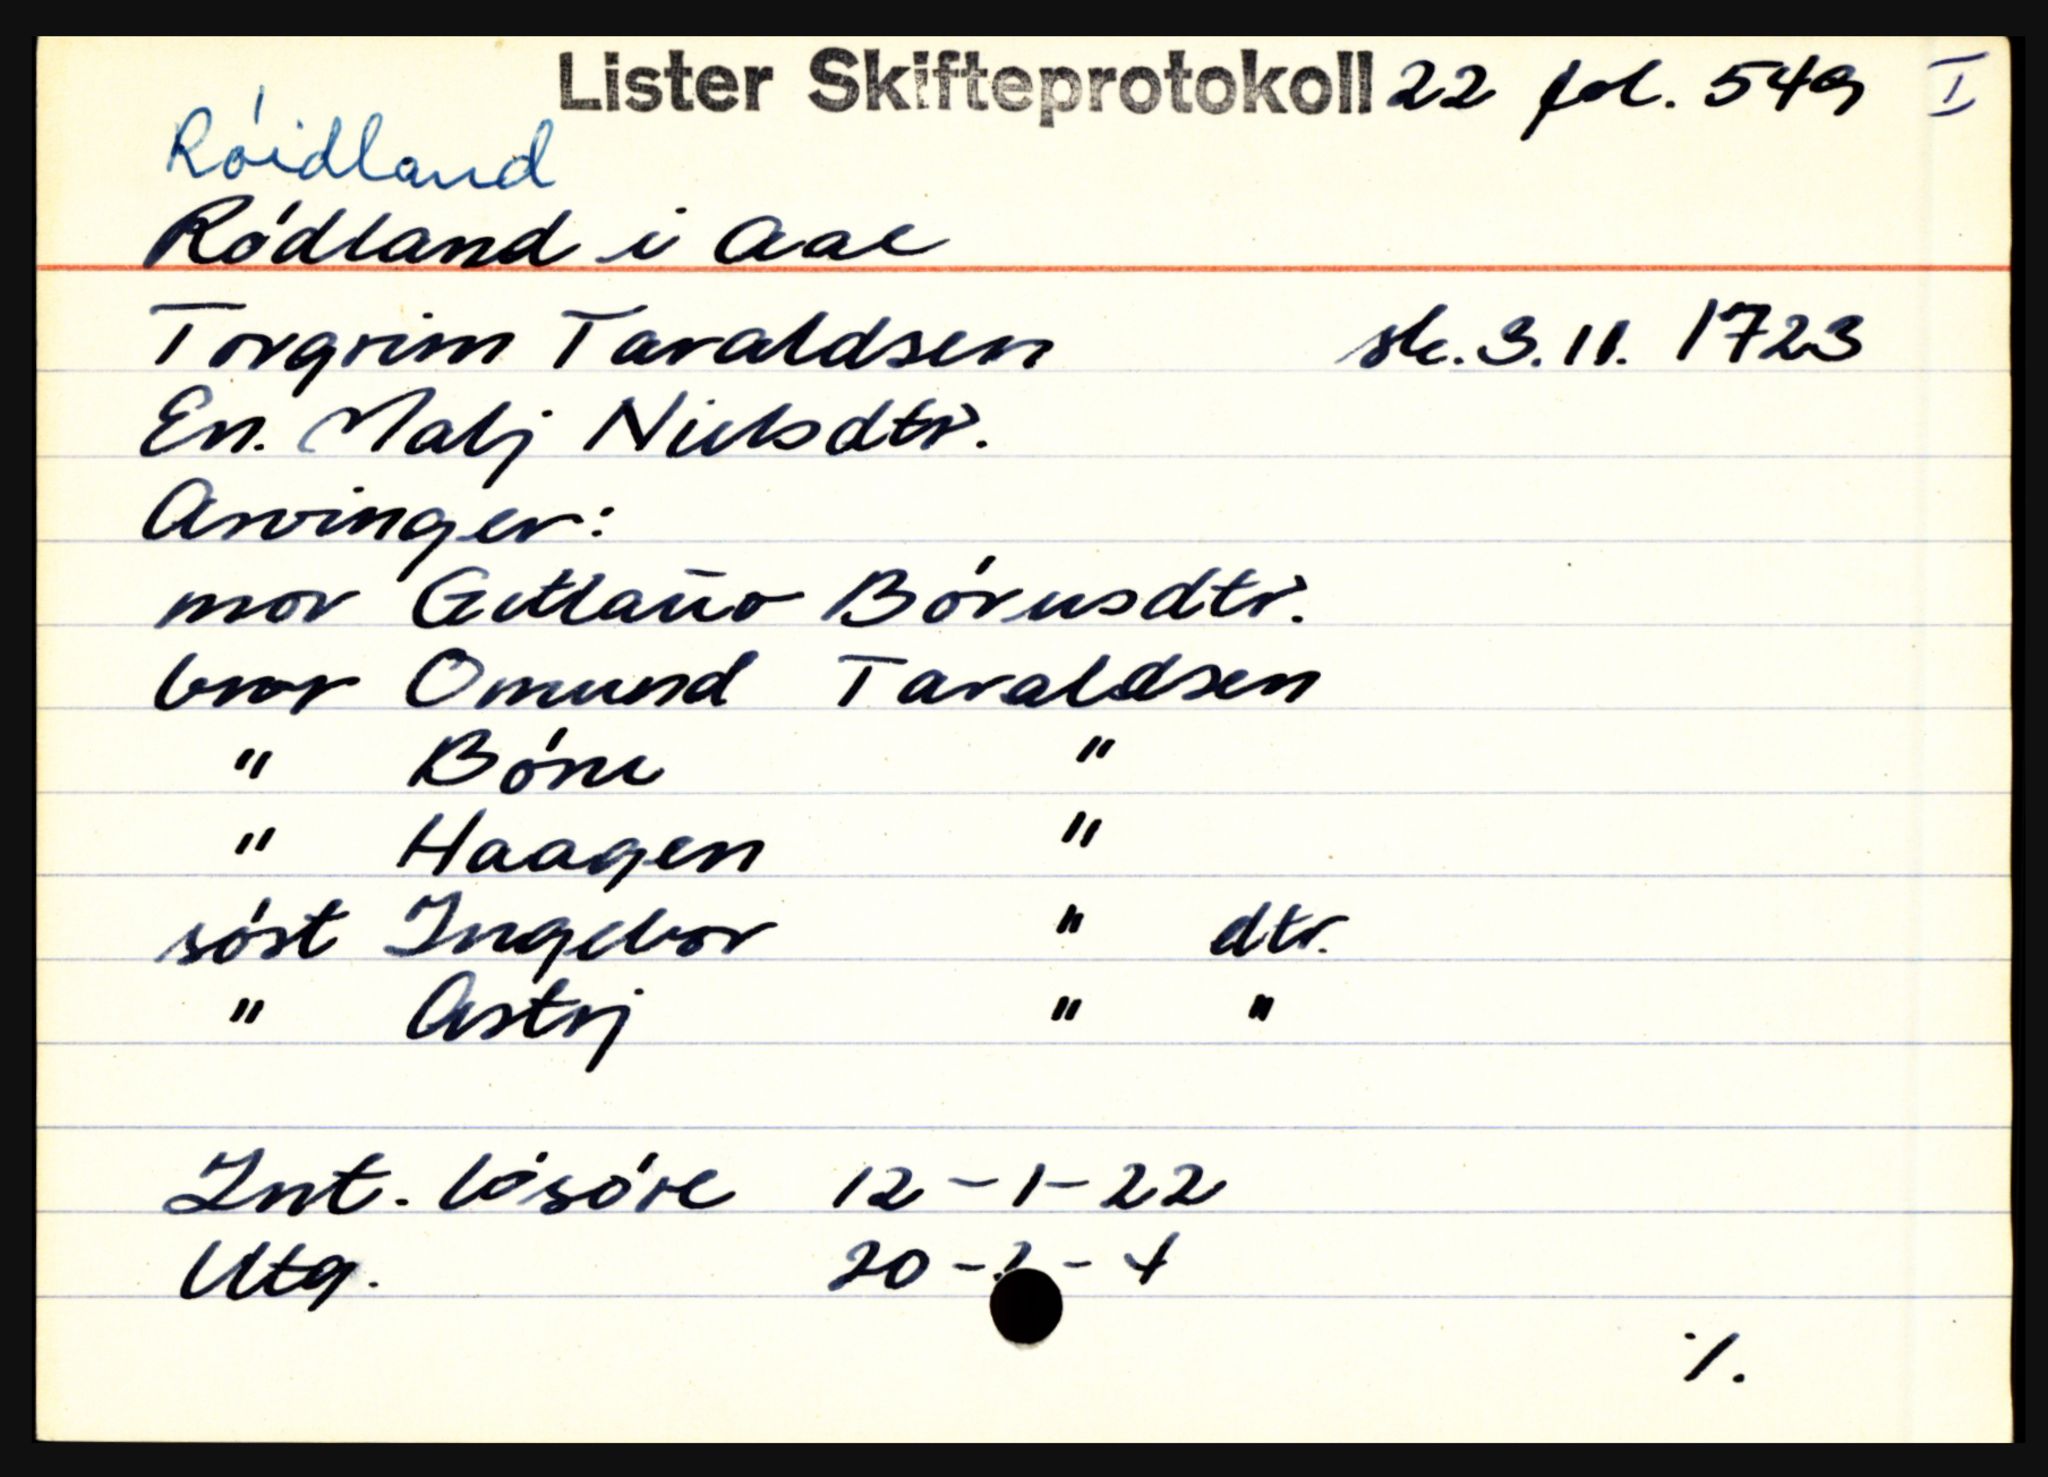 Lister Skifteprotokoll 22 fol. 549 I
Róidland
Ródland i Aae
Torgrim Taraldsen sk. 3.11. 1723
En. Malj Nielsdtr.
Arvinger:
mor Gitlaŭo Börnsdtr.
bror Omund Taraldsen
" Bórne "
" Haagen "
sóst Ingebor " dtr.
" Astrj " "
Int. lósóre 12-1-22
Utg. 20-2-4
%.